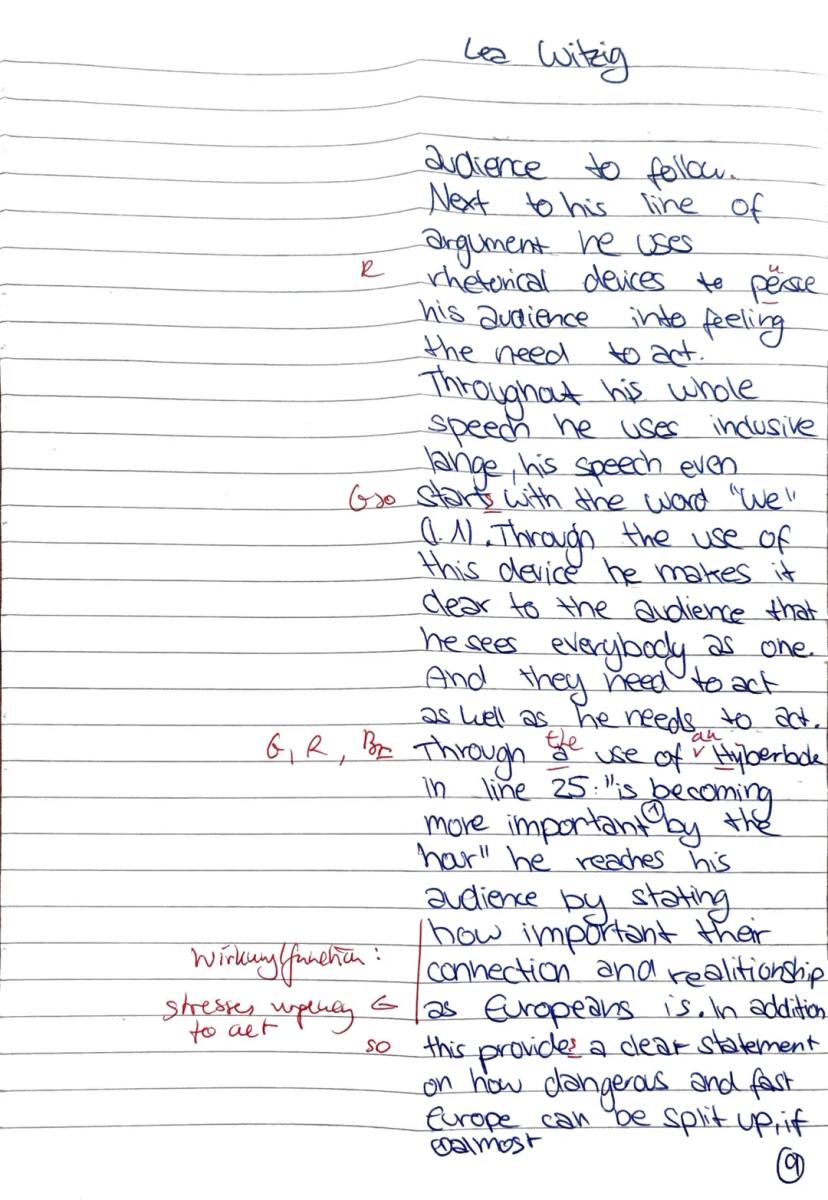 Lea Witzig
audience to follow.
Next to his line of
argument he uses
R rhetorical devices to persue
u
his audience into feeling
the need to act.
Throughout his whole
speech he uses inclusive
lange, his speech even
Gso starts with the word "We"
(l. 1). Through the use of
this device he makes it
clear to the audience that
he sees everybody as one.
And they need to act
as well as he needs to act.
the an
G, R, Bz Through a use of Hyberbole
in line 25: "is becoming
more important ① by the
hour" he reaches his
audience by stating
how important their
Wirkung/function:
connection and realitionship
stresses urgency as Europeans is. In addition
to act
so this provides a clear statement
on how dangeras and fast
Europe can be split up, if
①almost
⑨